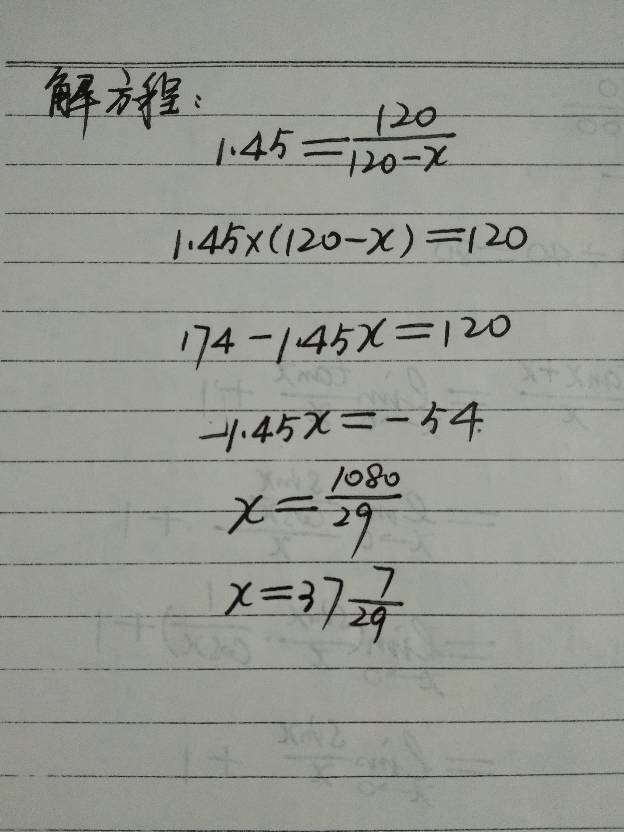 解方程:
1.45=120/(120-x)
1.45×(120-x)=120
174-1.45x=120
-1.45x=-54
x=1080/29
x=37 7/29